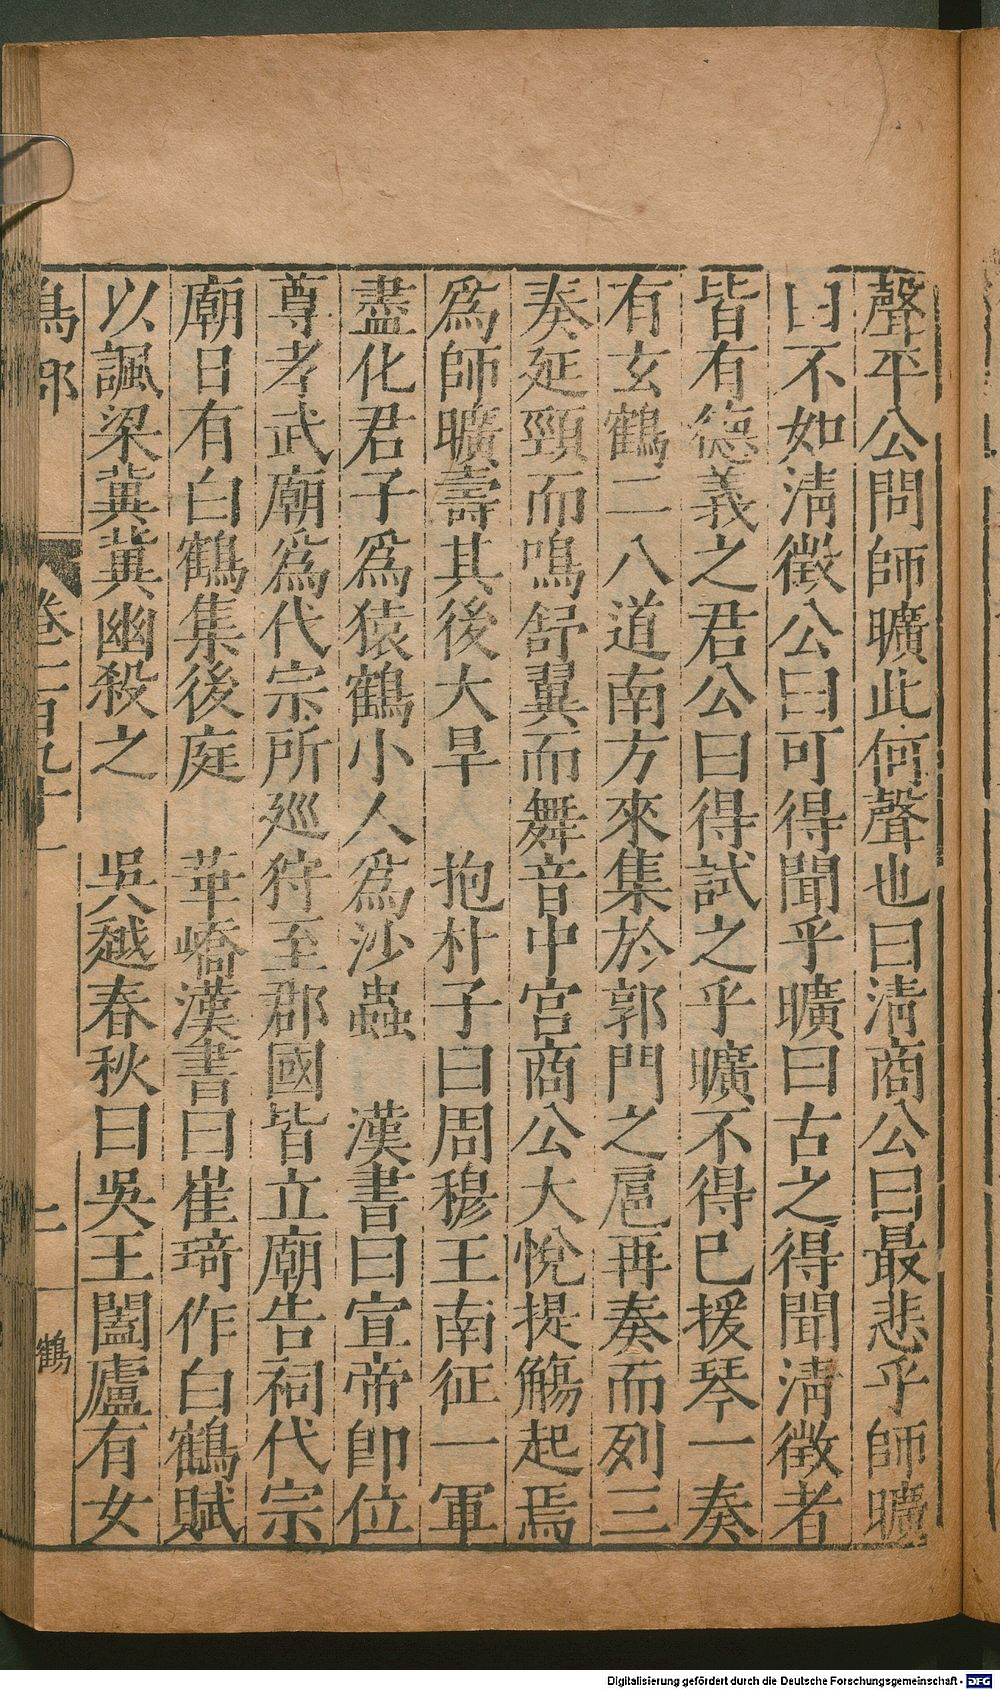 聲平公問師曠此何聲也曰淸商公曰最悲乎師曠
曰不如淸徵公曰可得聞乎曠曰古之得聞淸徵者
皆有德義之君公曰得試之乎曠不得已援琴一奏
有玄鶴二八道南方來集於郭門之扈再奏而列三
奏延頸而鳴舒翼而舞音中宮商公大悅提觴起焉
爲師曠壽其後大旱　抱朴子曰周穆王南征一軍
盡化君子爲猿鶴小人爲沙蟲　漢書曰宣帝卽位
尊孝武廟爲代宗所巡狩至郡國皆立廟告祠代宗
廟日有白鶴集後庭　華嶠漢書曰崔琦作白鶴賦
以諷梁冀冀幽殺之　吳越春秋曰吳王闔廬有女
鳥部　卷一百九十一　二　鶴
Digitalisierung gefördert durch die Deutsche Forschungsgemeinschaft - DFG